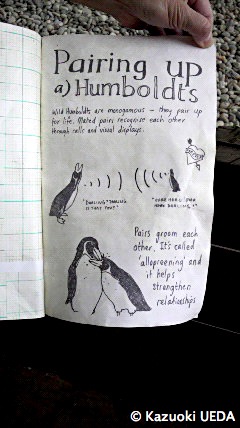 Pairing up
a) Humboldts
Wild Humboldts are monogamous - they pair up
for life. Mated pairs recognise each other
through calls and visual displays.
"DARLING? DARLING
IS THAT YOU?"
Pairs groom each
other. It's called
'allopreening' and
it helps
strengthen
relationships
© Kazuoki UEDA